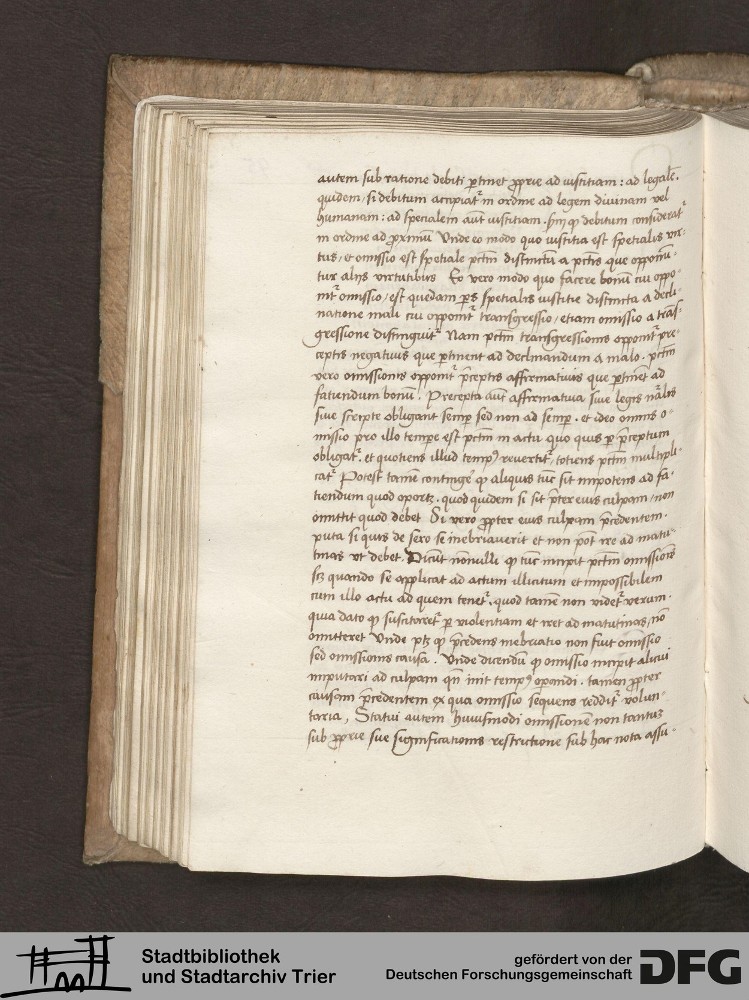 autem sub ratione debiti ꝑtinet ꝓprie ad iustitiam : ad legalē.
quidem / si debitum accipiatᷣ in ordine ad legem diuinam vel
humanam : ad specialem aūt iustitiam . ꝙ debitum consideratᷣ
in ordine ad ꝓximū Vnde eo modo quo iustitia est spetialis vir-
tus / et omissio est spetiale pctm̄ distinctū a pctīs que opponū-
tur alijs virtutibus Eo vero modo quo facere bonū cui oppo-
nitᷣ omissio / est quedam ꝑs spetialis iustitie distincta a decli-
natione mali cui opponitᷣ transgressio / etiam omissio a trās-
gressione distinguitᷣ Nam pctm̄ transgressionis opponitᷣ pre-
ceptis negatiuis que ꝑtinent ad declinandum a malo . pctm̄
vero omissionis opponitᷣ p̄ceptis affirmatiuis que ꝑtinēt ad
fatiendum bonū . Precepta aūt affirmatiua siue legis nālis
siue scripte obligant semꝑ sed non ad semꝑ . et ideo omnis o-
missio pro illo tempe est pctm̄ in actu quo quis ꝑ p̄ceptum
obligatᷣ . et quotiens illud tempꝰ reuertitᷣ , totiens pctm̄ multipli-
catᷣ Potest tamē contingē ꝙ aliquis tūc sit impotens ad fa-
tiendum quod oportꝫ . quod quidem si sit p̄ter eius culpam / non
omittit quod debet Si vero ꝓpter eius culpam p̄cedentem .
puta si quis de sero se inebriauerit et non pōt ire ad matu-
tinas vt debet . Dicūt nōnulli ꝙ tūc incipit pctm̄ omissionis
scꝫ quando se applicat ad actum illicitum et impossibilem
cum illo actu ad quem tenetᷣ . quod tamē non videtᷣ verum .
quia dato ꝙ suscitaretᷣ ꝑ violentiam et iret ad matutinas , nō
omitteret Vnde ptꝫ ꝙ p̄cedens inebriatio non fuit omissio
sed omissionis causa . Vnde dicendū ꝙ omissio incipit alicui
imputari ad culpam qn̄ init tempꝰ oꝑandi . tamen ꝓpter
causam p̄cedentem ex qua omissio sequens redditᷣ volun-
taria , Statui autem huiusmodi omissionē non tantuꝫ
sub ꝓprie sue significationis restrictione sub hac nota assu-
Stadtbibliothek
und Stadtarchiv Trier
gefördert von der
Deutschen Forschungsgemeinschaft
DFG